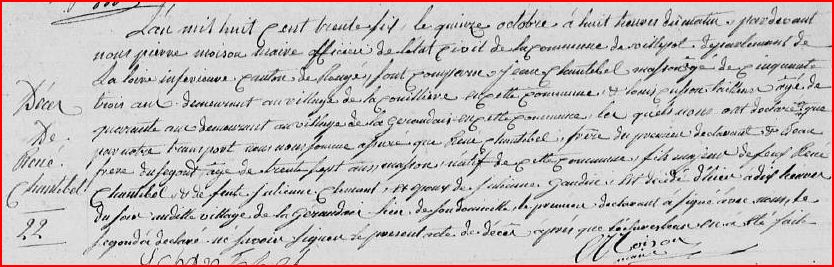 L'an mil huit cent trente six, le quinze octobre, à huit heures du matin, pardevant
nous pierre moison maire officier de l'état civil de la commune de villepot, département de
la loire inférieure canton de Rougé, sont comparus, jean Chantebel masson âgé de cinquante
trois ans demeurant au village de la pouillière en cette commune, & louis tailleur, âgé, de
quarante ans demeurant au village de la Geraudais en cette commune, les quels nous ont déclaré que
par notre transport nous nous somme assuré que René Chantebel, frère du premier déclarant, & beau
frère du segond, âgé de trente sept ans, masson, natif de cette commune, fils majeur de feux René
Chantebel, & de feue julienne & epoux de julienne Gaudin, est décédé d'hier a dix heures
du soir audit village de la Geraudais lieu de son domicille, le premier déclarant a signé avec nous, le
segond a déclaré ne savoir signer le présent acte de décès, après que lecture leur en a été fait
Moison
maire
Décès
De
René
Chantebel
22